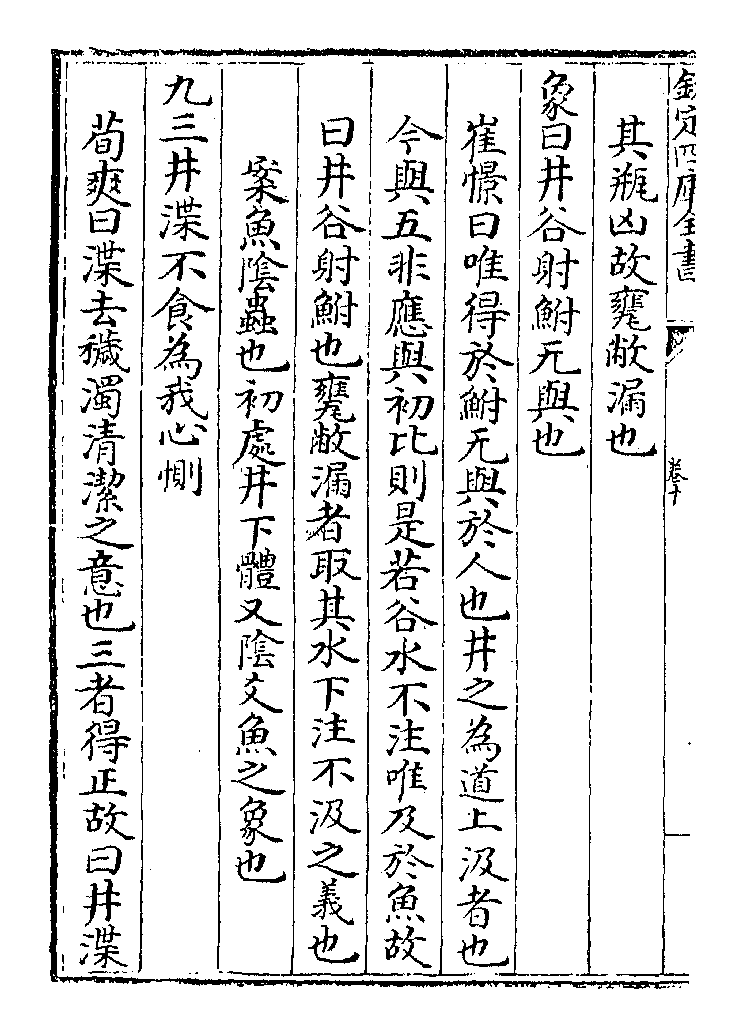 欽定四庫全書
卷十
其瓶凶故甕敝漏也
象曰井谷射鮒无與也
崔憬曰唯得於鮒无與於人也井之為道上汲者也
今與五非應與初比則是若谷水不注唯及於魚故
曰井谷射鮒也甕敝漏者取其水下注不汲之義也
案魚陰蟲也初處井下體又陰爻魚之象也
九三井渫不食為我心惻
荀爽曰渫去穢濁清潔之意也三者得正故曰井渫